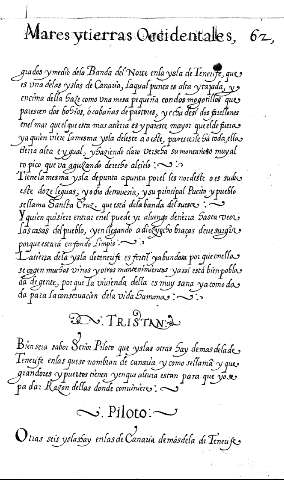 Mares ytierras Occidentales, 62,
grados y medio dela Banda del Norte en la ysla de Teneriffe, que
es vna delas yslas de Canaria, laqual punta es alta y tajada, y
encima della haze como una mesa pequeña con dos mogotillos que
parescen dos bohios, o cabañas de pastores, y echa desi dos farellones
enel mar
ya quien viene la mesma ysla deleste a o este, paresce
tierra alta e ygual, y haziendo claro Verseha su mon muy al
to pico que va aguzando derecho al çielo
Tiene la mesma ysla de punta a punta por el les nordeste o es sudu
este doze leguas, y o su principal Puerto y pueblo
sellama Sancta Cruz, que está dela banda del sueste
Y quien quisiere entrar enel puede yr aluengo de tierra hasta ver
las casas del pueblo, y en llegando a diez y ocho braças deue surgir
porque estara en fondo limpio
La tierra dela ysla de teneriffe es fertil y abundosa por que enella
se cogen muchos vinos y otros mantenimientos ya assi está bien pobla
da de gente, por que la vivienda della es muy sana y a comoda
da para la conservacion dela vida humana
TRISTAN
B saber Señor Piloto que yslas otras hay demas dela de
Teneriffe en las que se nombran de canaria y como se llaman y que
grandores y puertos tienen y en que altura estan para que yo se
pa dar Razon dellas donde conviniere
Piloto
Otras seis yslas hay en las de Canaria demas dela de Teneriffe